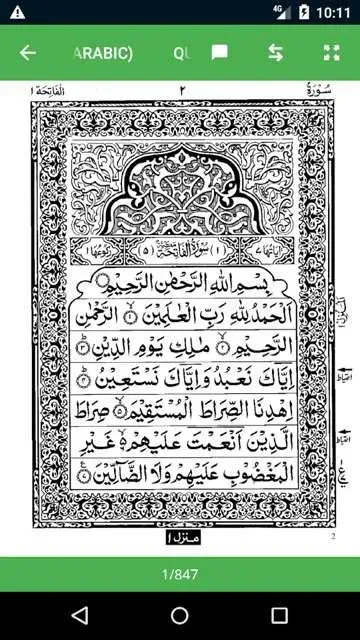 10:11
ARABIC) QU
سُورَةُ ٢ الْفَاتِحَة ١
اٰيَاتُهَا ٧ (١) سُوْرَةُ الْفَاتِحَةِ (٥) رُكُوْعُهَا ١
بِسْمِ اللهِ الرَّحْمٰنِ الرَّحِيْمِ
اَلْحَمْدُ لِلّٰهِ رَبِّ الْعٰلَمِيْنَ ۝١ الرَّحْمٰنِ
الرَّحِيْمِ ۝٢ مٰلِكِ يَوْمِ الدِّيْنِ ۝٣
اِيَّاكَ نَعْبُدُ وَاِيَّاكَ نَسْتَعِيْنُ ۝٤
اِهْدِنَا الصِّرَاطَ الْمُسْتَقِيْمَ ۝٥ صِرَاطَ
الَّذِيْنَ اَنْعَمْتَ عَلَيْهِمْ ۝٦ غَيْرِ
الْمَغْضُوْبِ عَلَيْهِمْ وَلَا الضَّآلِّيْنَ ۝٧
منزل ١
2
1/847